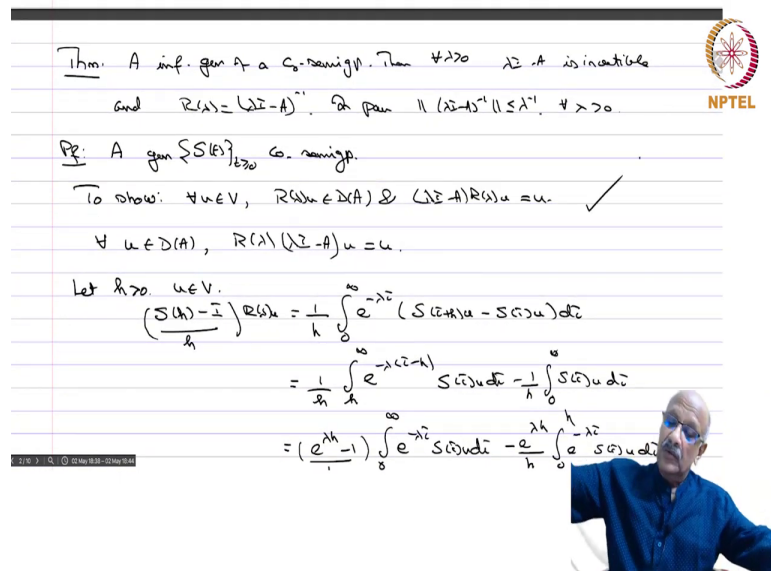 Thm. A inf. gen of a C₀-semigp. Then ∀λ>0 λI-A is invertible
and R(λ) = (λI-A)⁻¹. In par ‖(λI-A)⁻¹‖ ≤ λ⁻¹. ∀λ>0.
NPTEL
Pf: A gen {S(t)}_{t≥0} C₀-semigp.
To show: ∀u∈V, R(λ)u ∈ D(A) & (λI-A)R(λ)u = u. ✓
∀ u∈D(A), R(λ)(λI-A)u = u.
Let h>0. u∈V.
((S(h)-I)/h) R(λ)u = 1/h ∫₀^∞ e^{-λτ} (S(τ+h)u - S(τ)u)dτ
= 1/h ∫_h^∞ e^{-λ(τ-h)} S(τ)u dτ - 1/h ∫₀^∞ S(τ)u dτ
= (e^{λh}-1) ∫₀^∞ e^{-λτ} S(τ)u dτ - e^{λh}/h ∫₀^h e^{-λτ} S(τ)u dτ
2/10 02 May 18:38 - 02 May 18:44